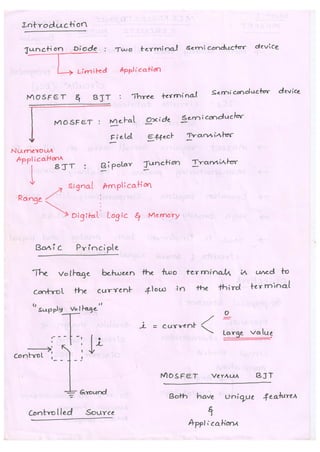 Introduction
Junction Diode : Two terminal semiconductor device
Limited Application
MOSFET & BJT : Three terminal semiconductor device
MOSFET : Metal Oxide Semiconductor
Field Effect Transistor
Numerous
Applications
BJT : Bipolar Junction Transistor
Signal Amplication
Range
Digital Logic & Memory
Basic Principle
The voltage between the two terminals is used to
control the current flow in the third terminal
"Supply Voltage"
i = current
0
Large value
i
Control
Ground
Controlled Source
MOSFET versus BJT
Both have unique features
&
Applications